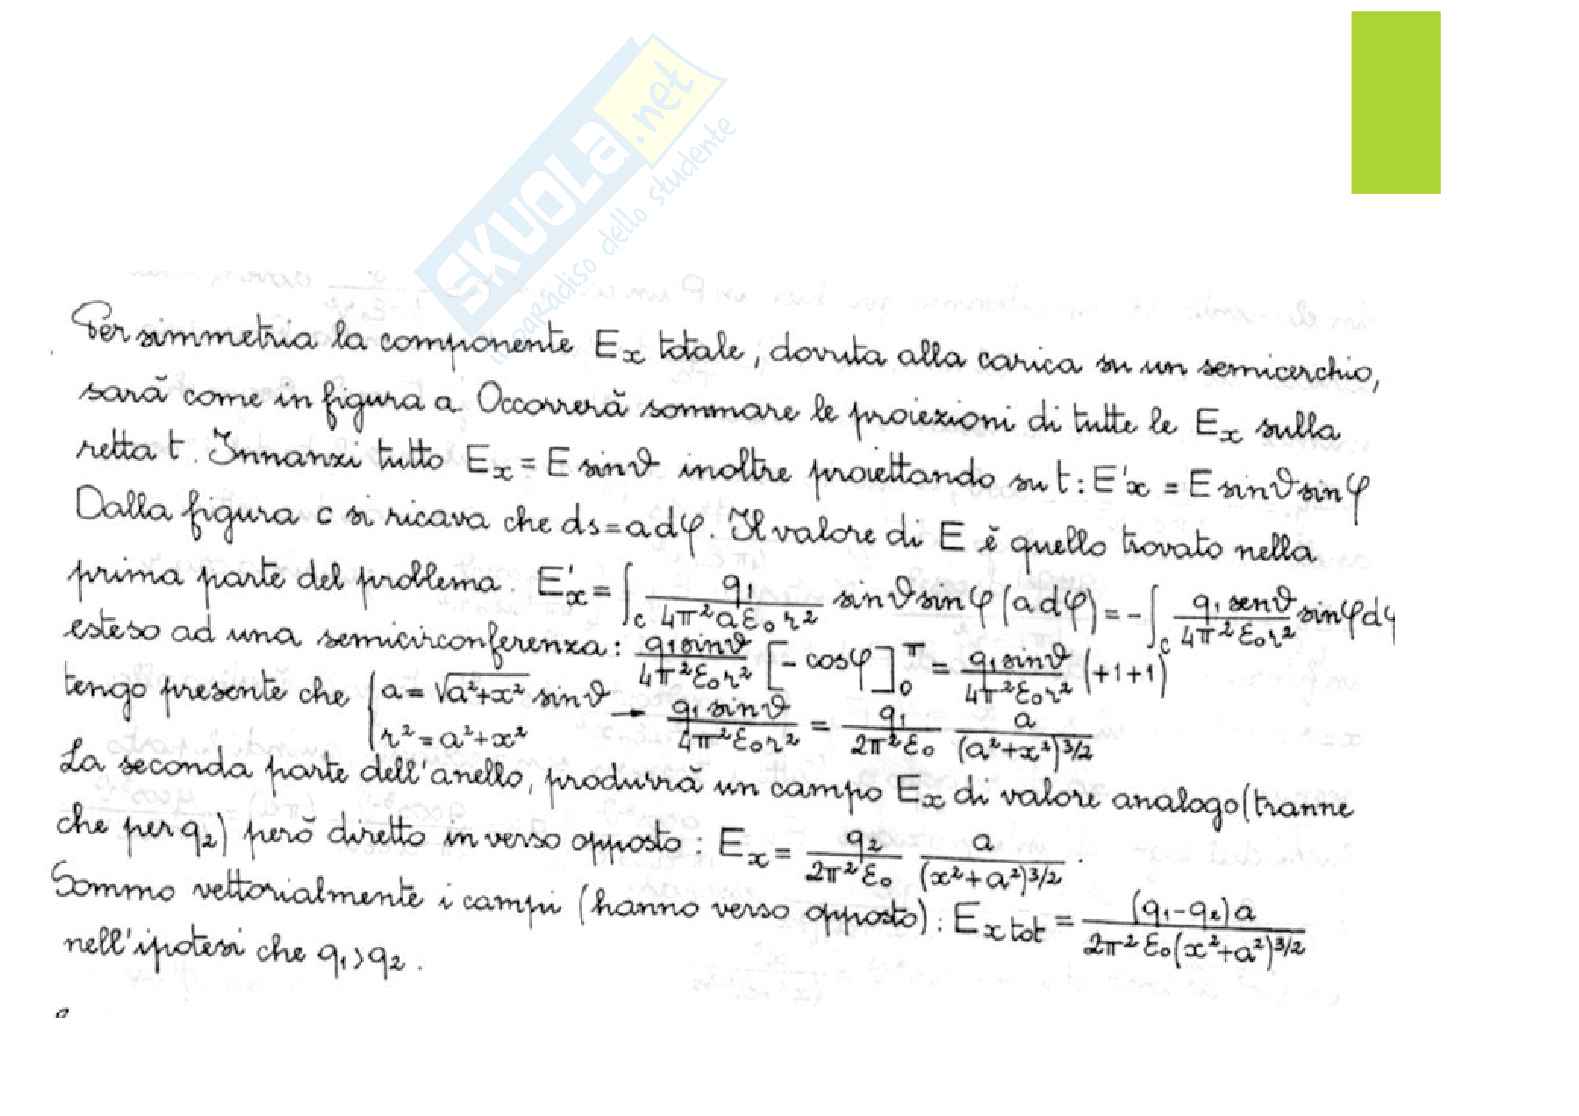 SKUOLA.net
il paradiso dello studente
Per simmetria la componente Ex totale, dovuta alla carica su un semicerchio,
sarà come in figura a. Occorrerà sommare le proiezioni di tutte le Ex sulla
retta t. Innanzi tutto Ex = E sinϑ inoltre proiettando su t: E'x = E sinϑ sinφ
Dalla figura c si ricava che ds = a dφ. Il valore di E è quello trovato nella
prima parte del problema. E'x = ∫c q1/(4π²aε₀r²) sinϑ sinφ (a dφ) = -∫c q1 senϑ/(4π²ε₀r²) sinφ dφ
esteso ad una semicirconferenza: q1 sinϑ/(4π²ε₀r²) [-cosφ]₀^π = q1 sinϑ/(4π²ε₀r²) (+1+1)
tengo presente che { a = √(a²+x²) sinϑ r² = a²+x² → q1 sinϑ/(4π²ε₀r²) = q1/(2π²ε₀) a/(a²+x²)^3/2
La seconda parte dell'anello, produrrà un campo Ex di valore analogo (tranne
che per q2) però diretto in verso opposto: Ex = q2/(2π²ε₀) a/(x²+a²)^3/2.
Sommo vettorialmente i campi (hanno verso opposto): Ex tot = (q1-q2)a/(2π²ε₀(x²+a²)^3/2)
nell'ipotesi che q1>q2.